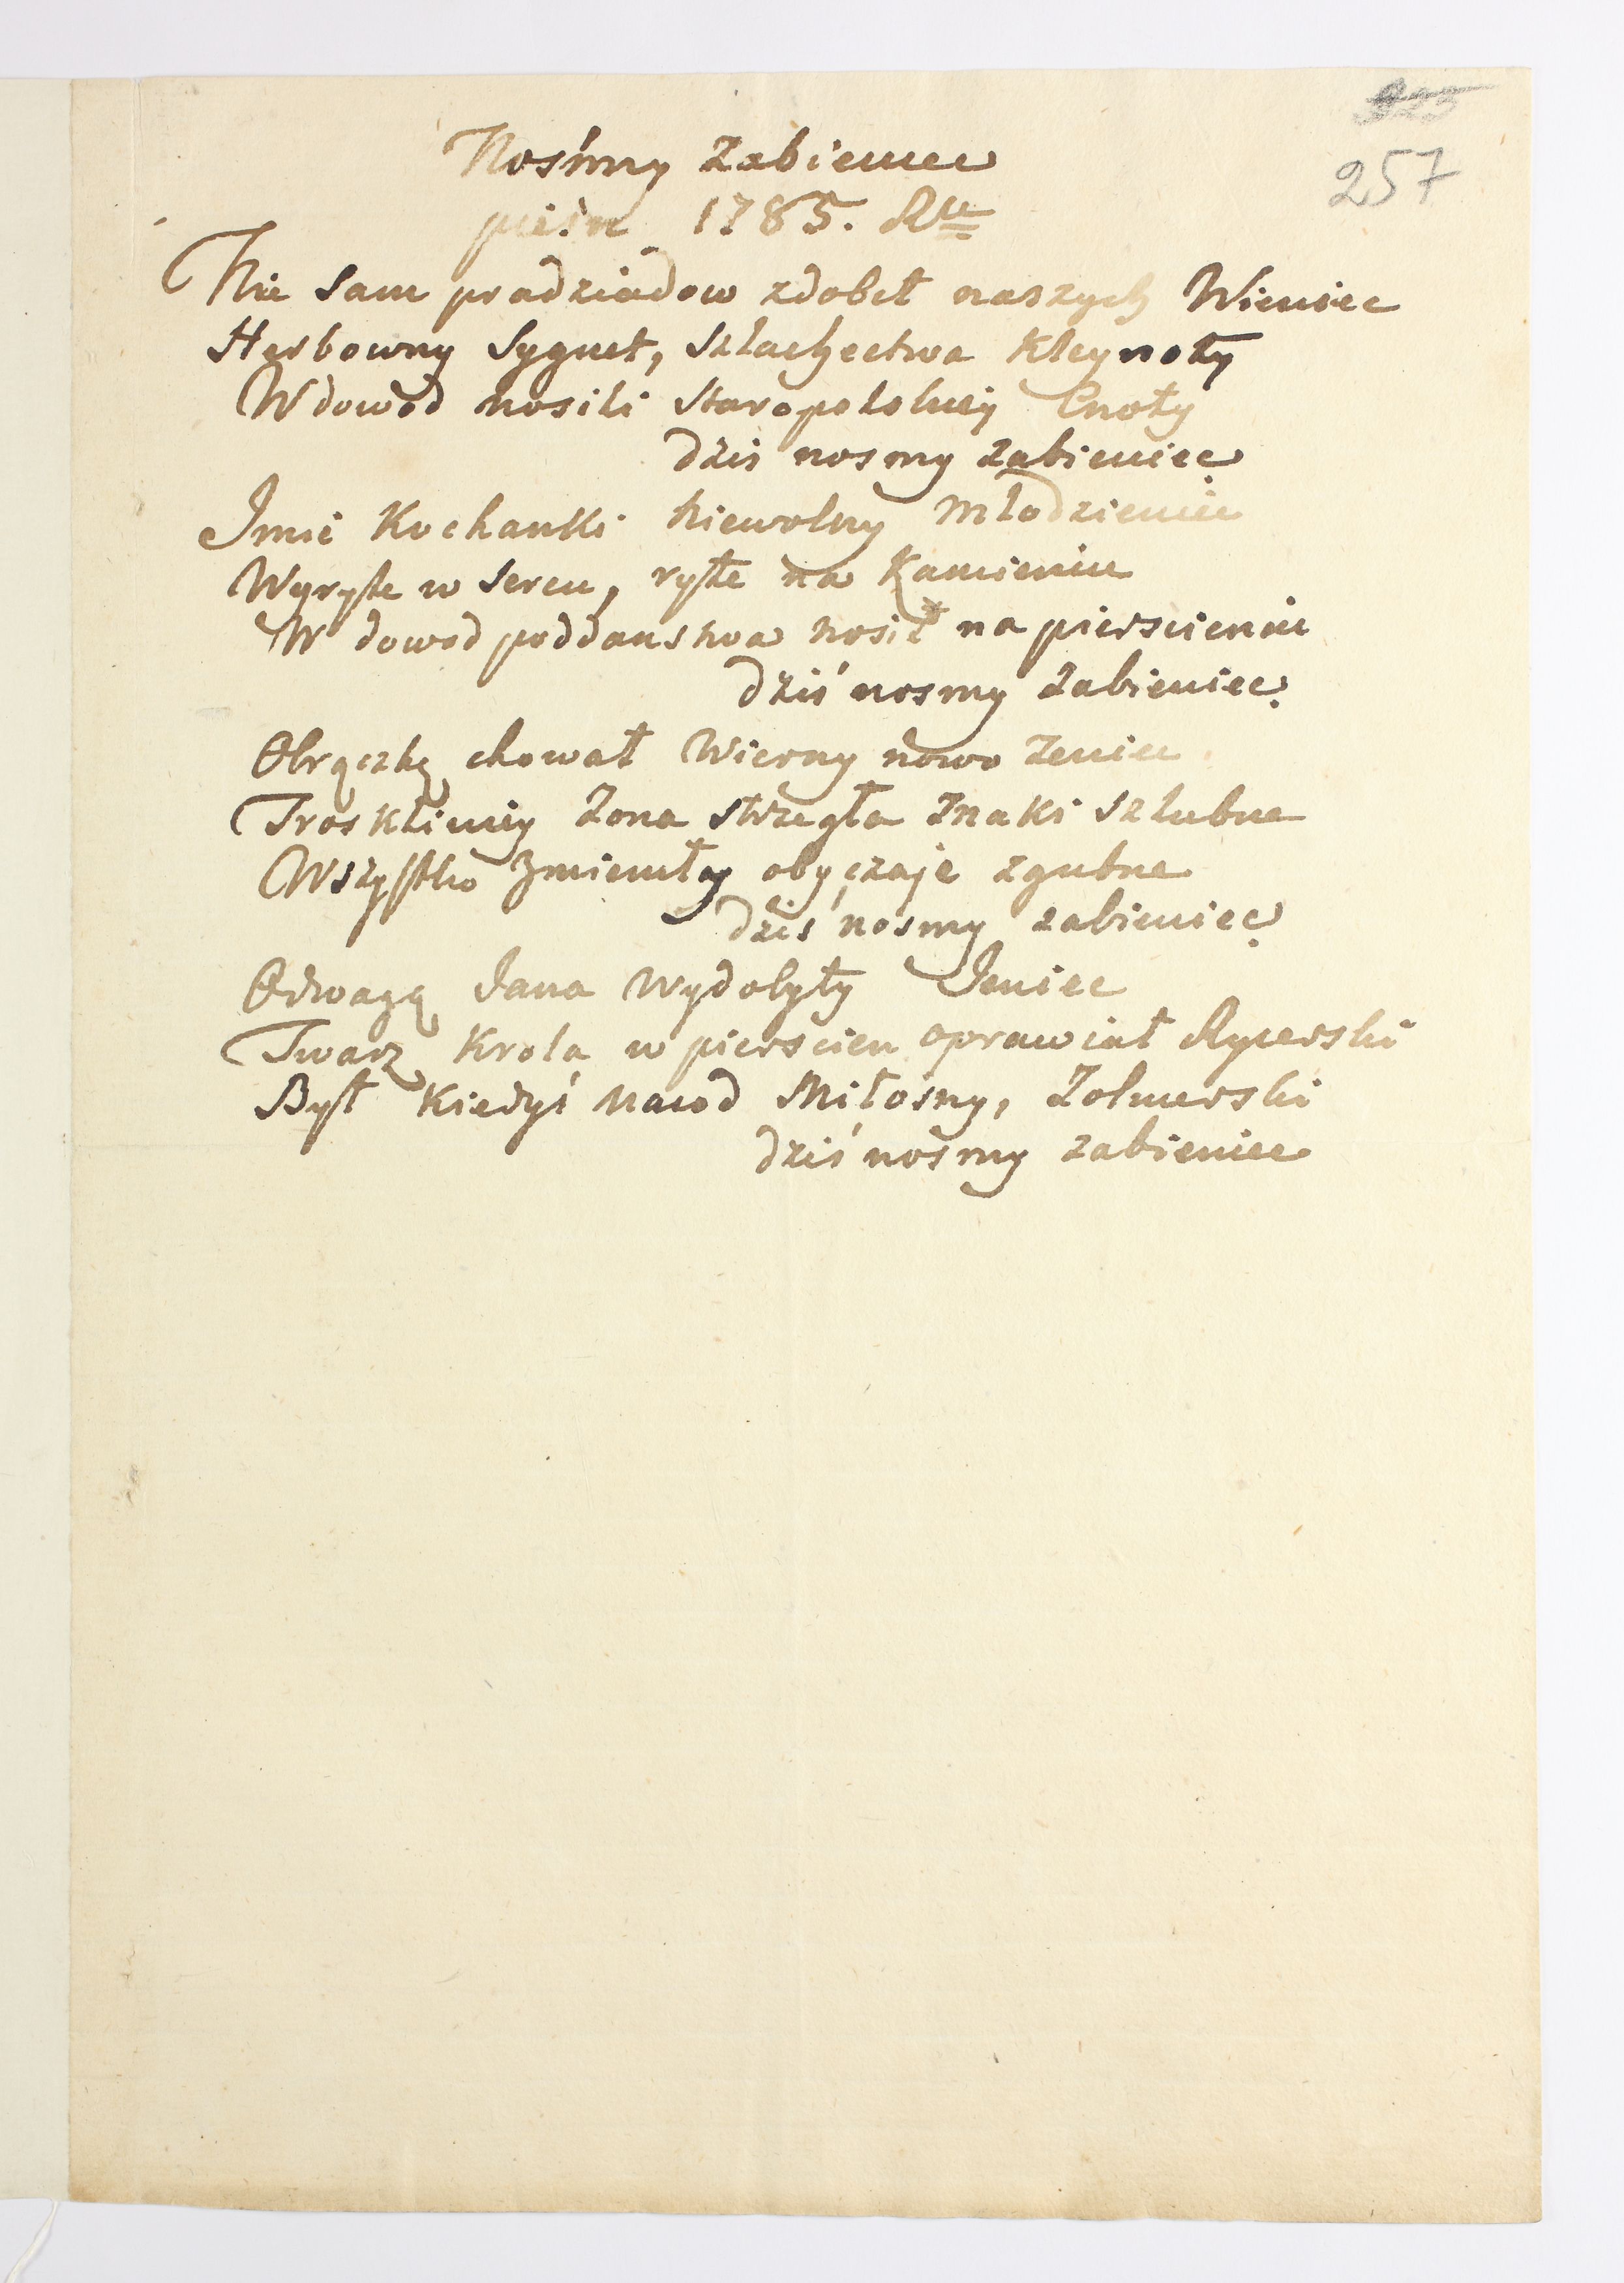 257
Nośmy Zabieniec
pieśń 1785. R<sup>u</sup>
Nie sam pradziadow zdobił naszych Wieniec
Herbowny Sygnet, Szlachectwa Kleynoty
W dowod nosili staropolskiey Cnoty
dzis nosmy zabieniec.
Imie Kochanki niewolny młodzieniec
Wyryte w sercu, ryte na Kamieniu
W dowod poddanstwa nosił na pierscieniu
dziś nosmy zabieniec.
Obrączkę chował Wierny nowo Zeniec
Troskliwiey Zona strzegła Znaki szlubne
Wszystko zmieniły obyczaje zgubne
dziś nosmy zabieniec
Odwagą Jana Wydobyty Jeniec
Twarz Krola w pierscien oprawiał Rycerski
Był Kiedyś narod Miłosny, Zolnierski
dziś nośmy zabieniec